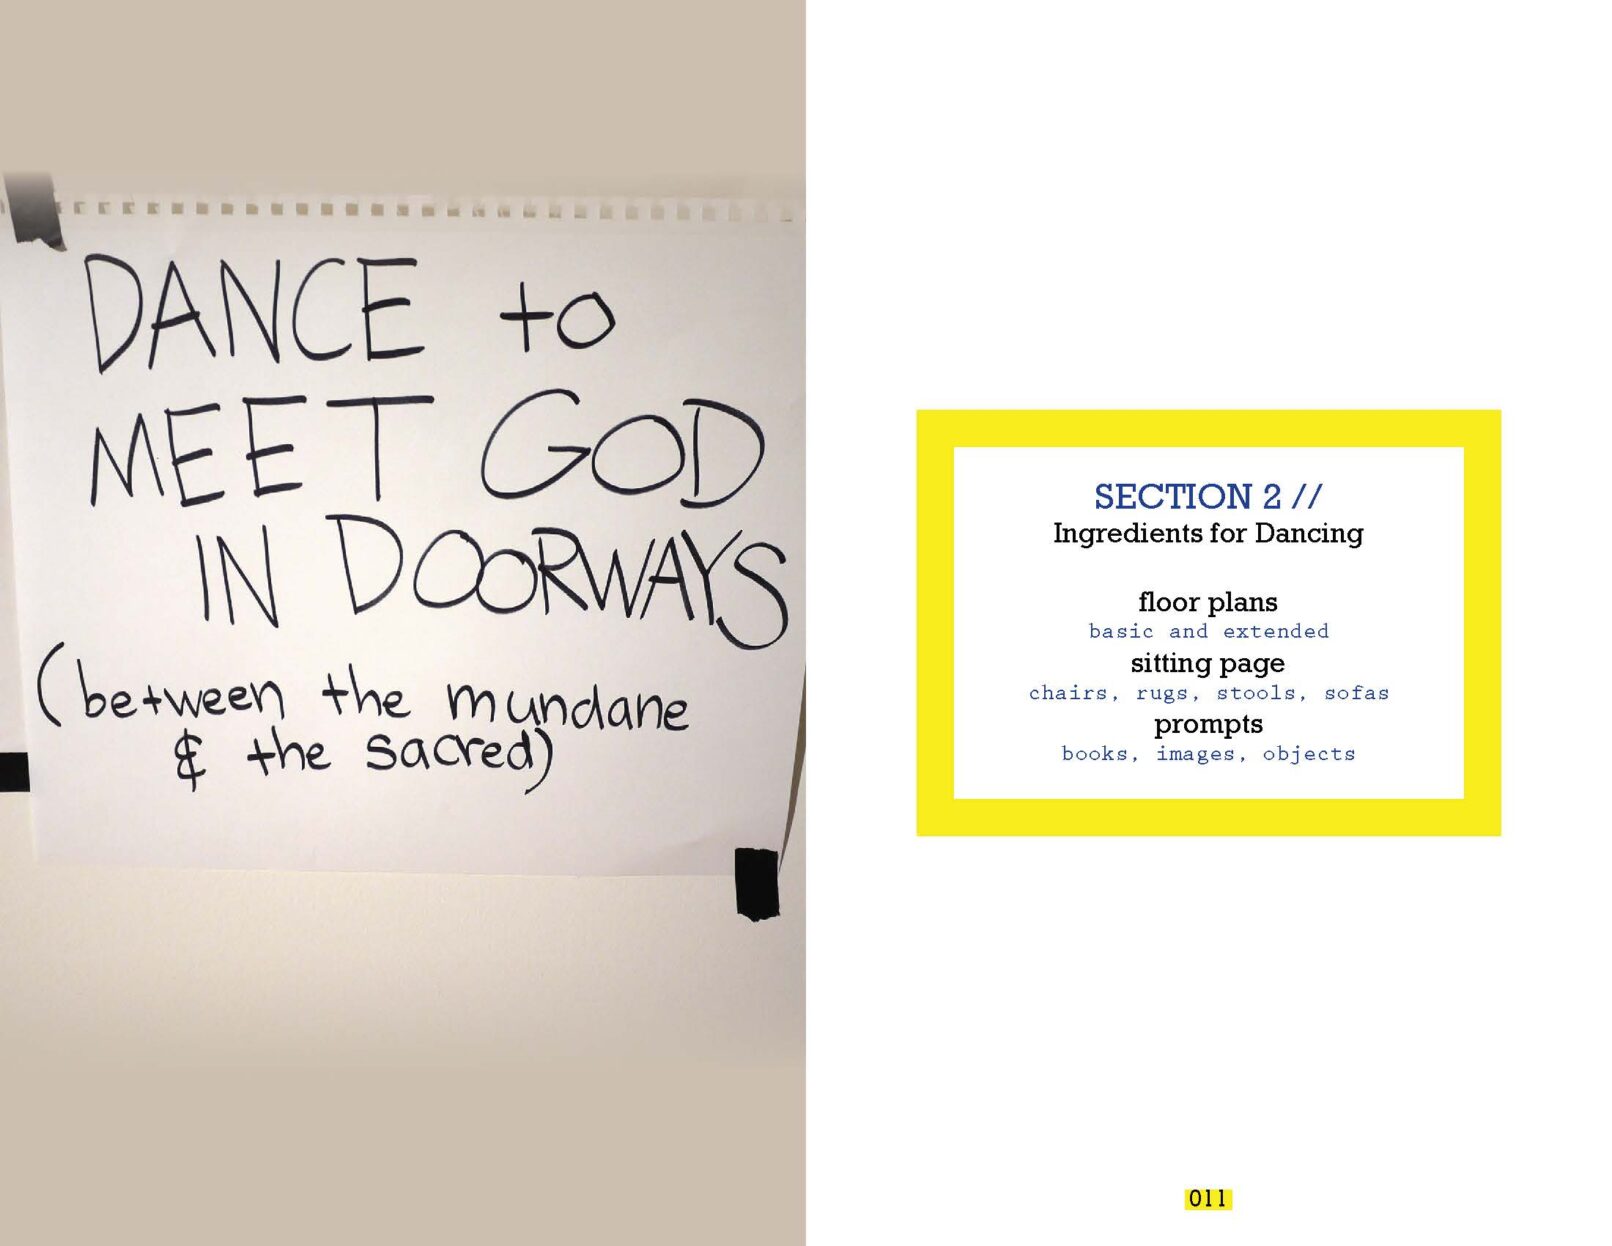 DANCE to
MEET GOD
IN DOORWAYS
(between the mundane
& the sacred)
SECTION 2 //
Ingredients for Dancing
floor plans
basic and extended
sitting page
chairs, rugs, stools, sofas
prompts
books, images, objects
011